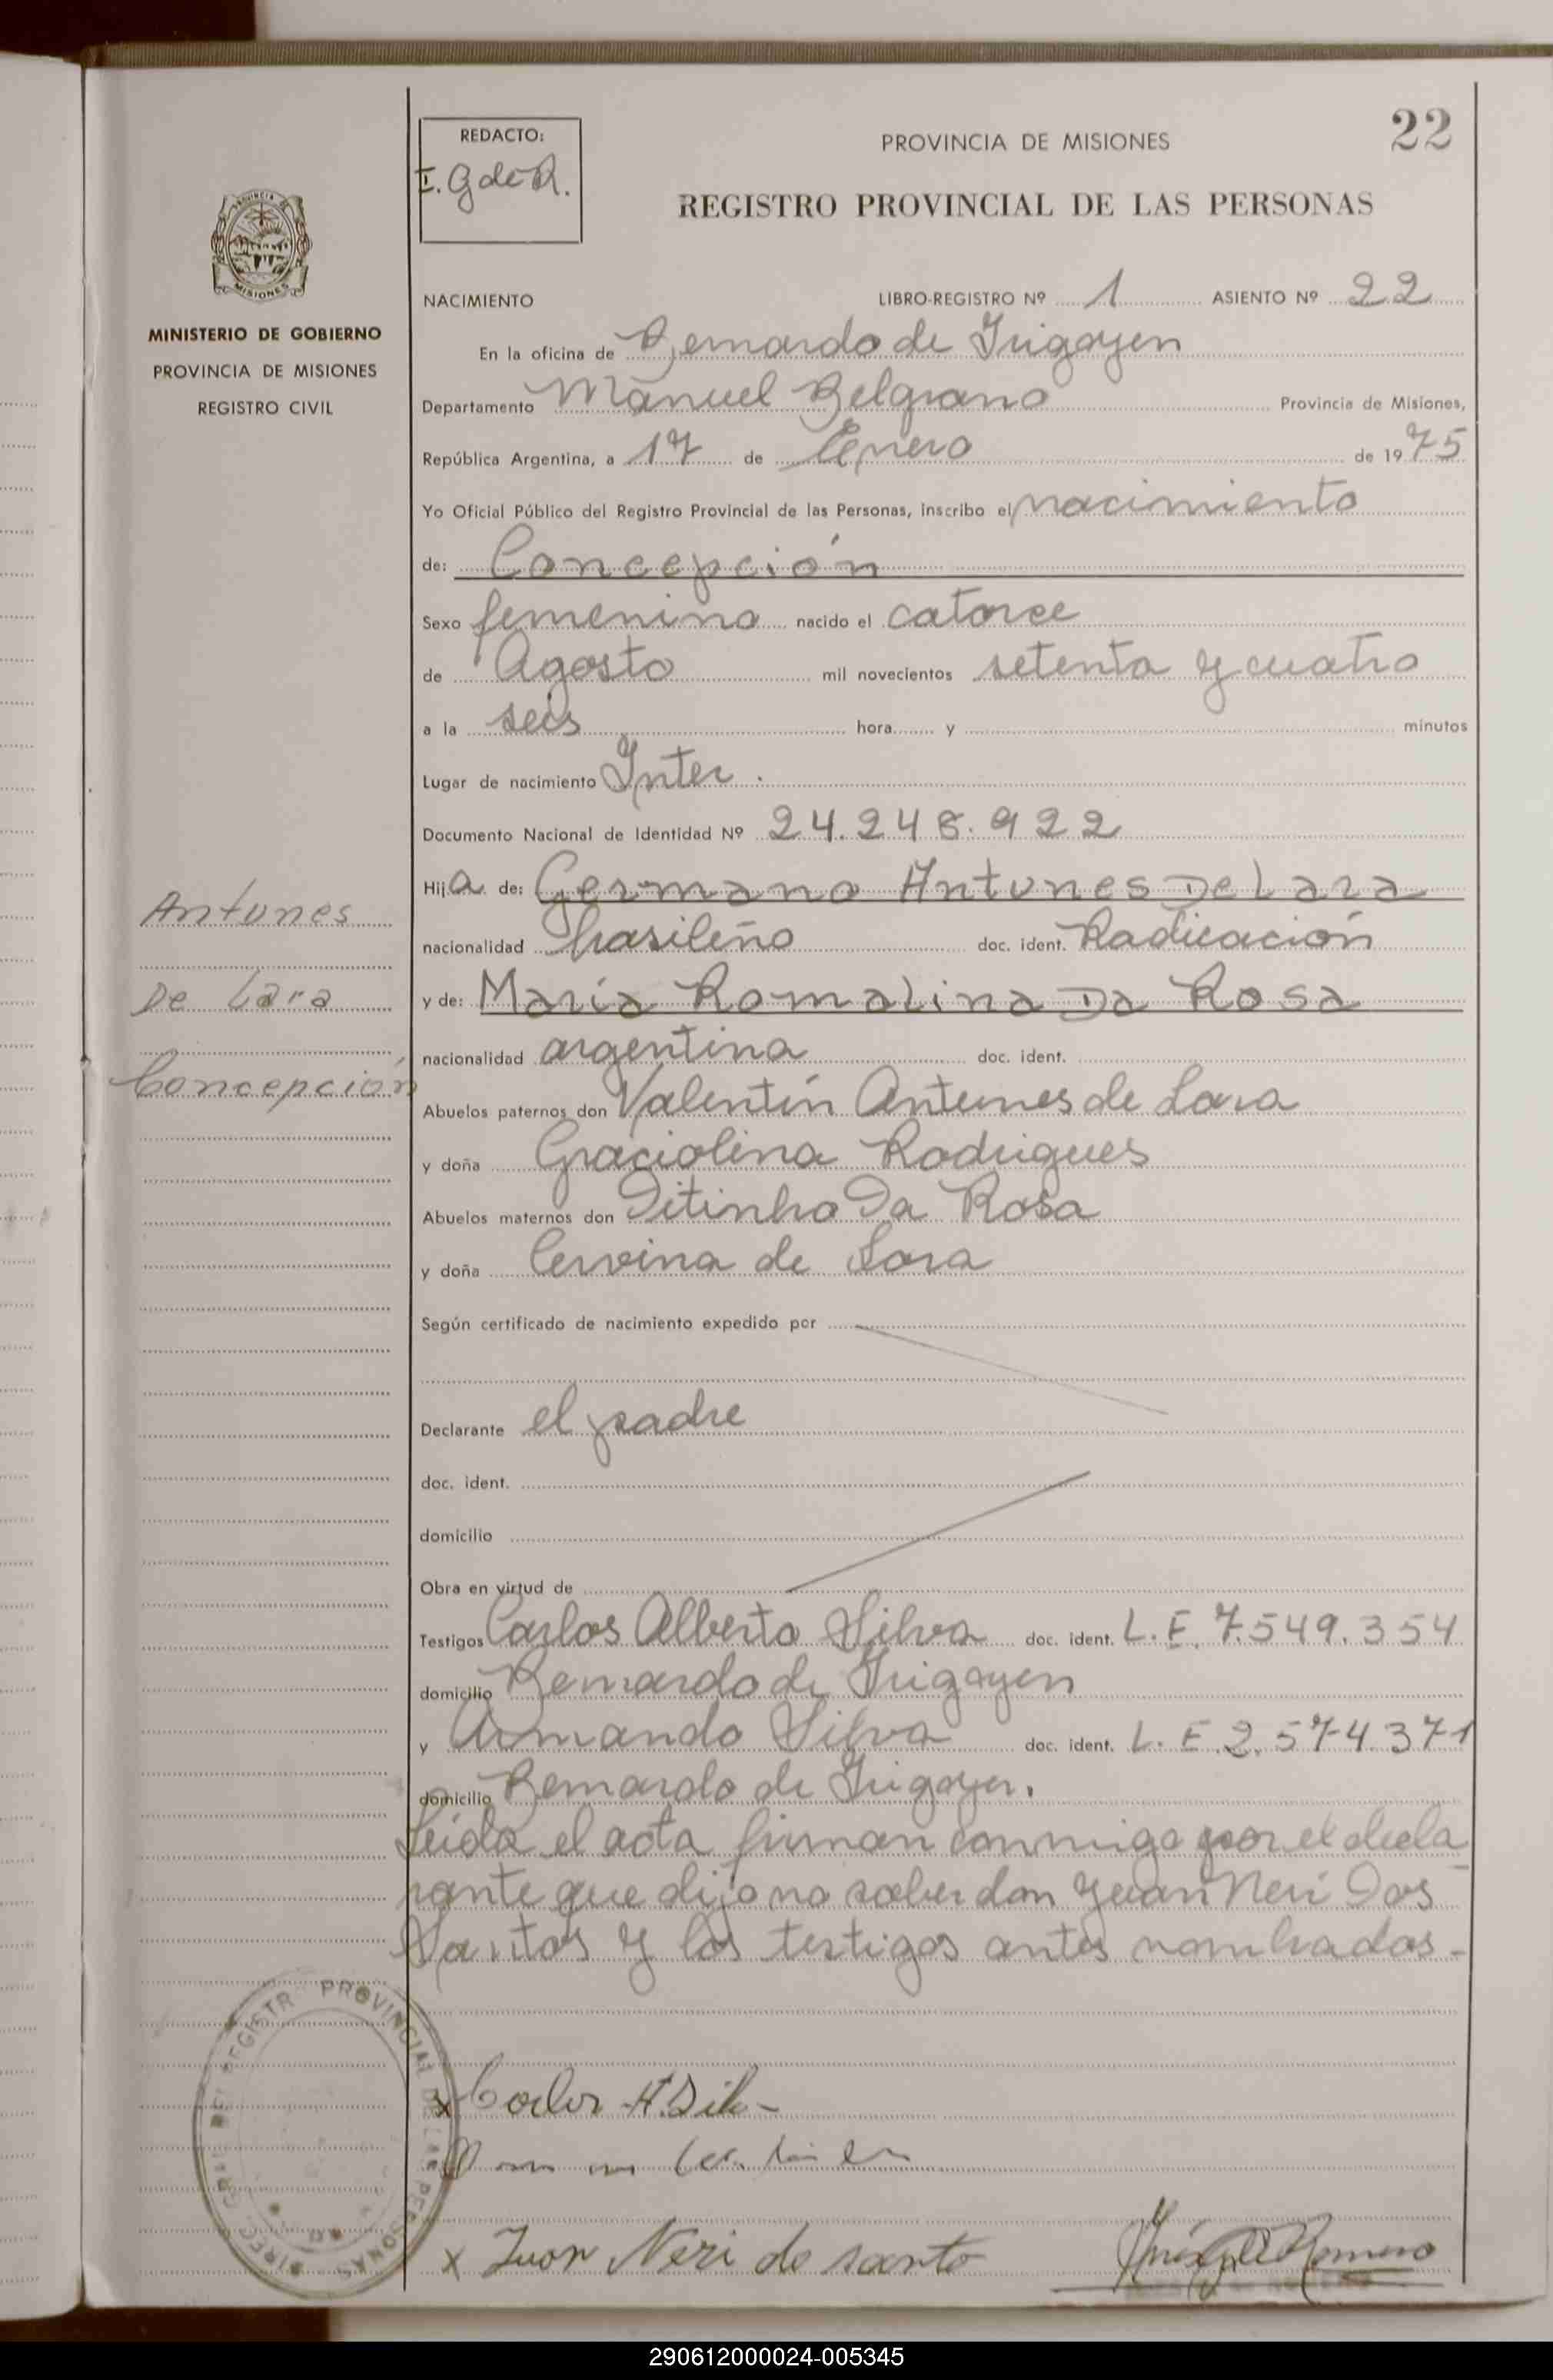 22
REDACTO:
I. G de R.
PROVINCIA DE MISIONES
REGISTRO PROVINCIAL DE LAS PERSONAS
MISIONES
MINISTERIO DE GOBIERNO
PROVINCIA DE MISIONES
REGISTRO CIVIL
NACIMIENTO LIBRO-REGISTRO Nº 1 ASIENTO Nº 22
En la oficina de Bernardo de Irigoyen
Departamento Manuel Belgrano Provincia de Misiones,
República Argentina, a 17 de Enero de 1975
Yo Oficial Público del Registro Provincial de las Personas, inscribo el nacimiento
de: Concepción
Sexo femenino nacido el catorce
de Agosto mil novecientos setenta y cuatro
a la seis hora y minutos
Lugar de nacimiento Inter.
Documento Nacional de Identidad Nº 24.248.922
Hija de: Germano Antunes De Lara
nacionalidad brasileño doc. ident. Radicación
y de: María Romalina Da Rosa
nacionalidad argentina doc. ident.
Antunes
De Lara
Concepción
Abuelos paternos don Valentín Antunes de Lara
y doña Graciolina Rodrigues
Abuelos maternos don Ditinho Da Rosa
y doña Cervina de Lara
Según certificado de nacimiento expedido por
Declarante el padre
doc. ident.
domicilio
Obra en virtud de
Testigos Carlos Alberto Silva doc. ident. L.E. 7.549.354
domicilio Bernardo de Irigoyen
y Armando Silva doc. ident. L.E. 2.574.371
domicilio Bernardo de Irigoyen.
Leida el acta firman conmigo por el decla
rante que dijo no saber don Juan Neri Dos
Santos y los testigos antes nombrados.-
DIREC. GRAL. DEL REGISTR PROVINCIAL DE LAS PERSONAS
x Carlos A. Silva
x Juan Neri do santo
Inés G de Romero
290612000024-005345